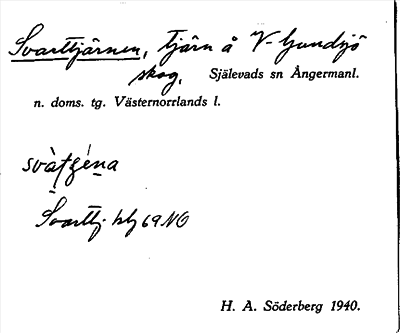 Svarttjärnen, tjärn å V-Gundsjö
skog. Själevads sn Ångermanl.
n. doms. tg. Västernorrlands l.
Svarttj. blj 69 NO
H. A. Söderberg 1940.